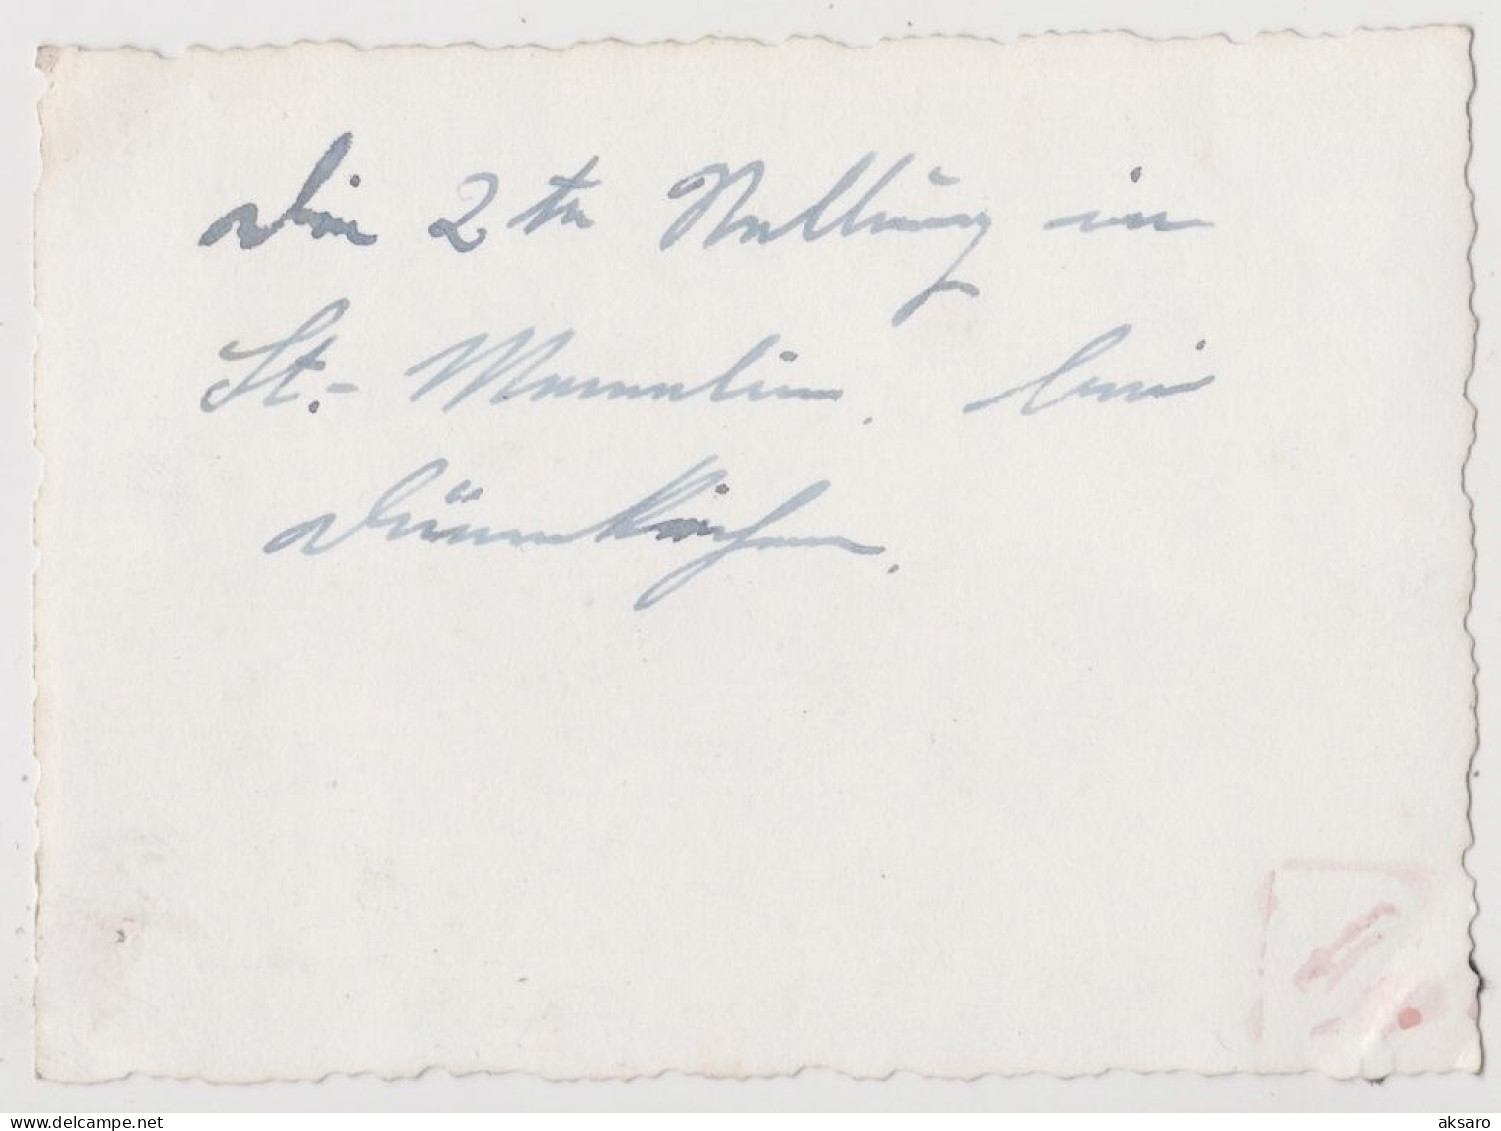 Die 2te Stellung in
St.- Momelin, bei
Dünnkirchen.
delcampe.net
aksaro